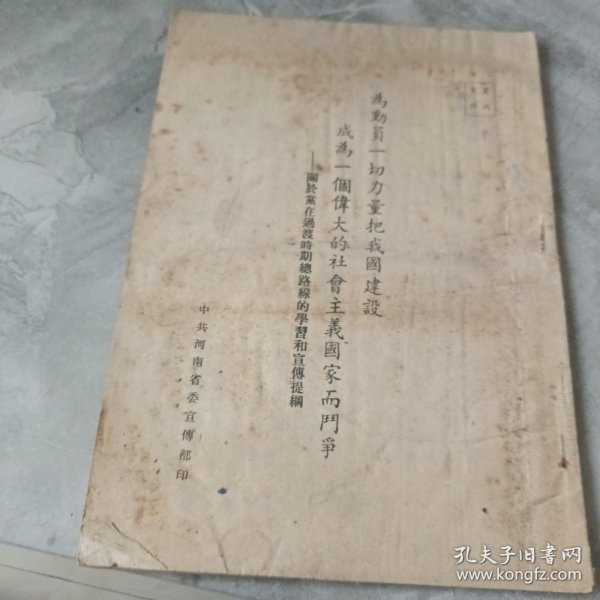 為動員一切力量把我國建設
成為一個偉大的社會主義國家而鬥爭
——關於黨在過渡時期總路線的學習和宣傳提綱
中共河南省委宣傳部印
孔夫子旧书网
www.kongfz.com